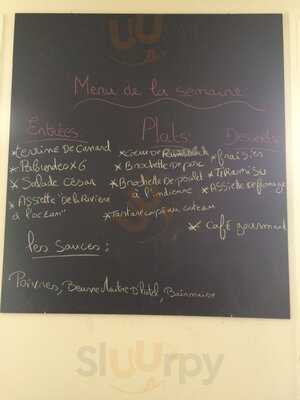 Menu de la semaine
Entrées
* terrine De Canard
* Palourdes x6
* Salade César
* Assiette "De la Rivière
à l'océan"
Plats
* Coeur de Rumsteack
* Brochette De porc
* Brochette De poulet
à l'indienne
* Tartare copieux couteau
Desserts
* fraisier
* Tiramisu
* Assiette De fromage
* CAFÉ gourmand
les Sauces :
Poivres, Beurre Maitre D'hotel, Béarnaise
Sluurpy